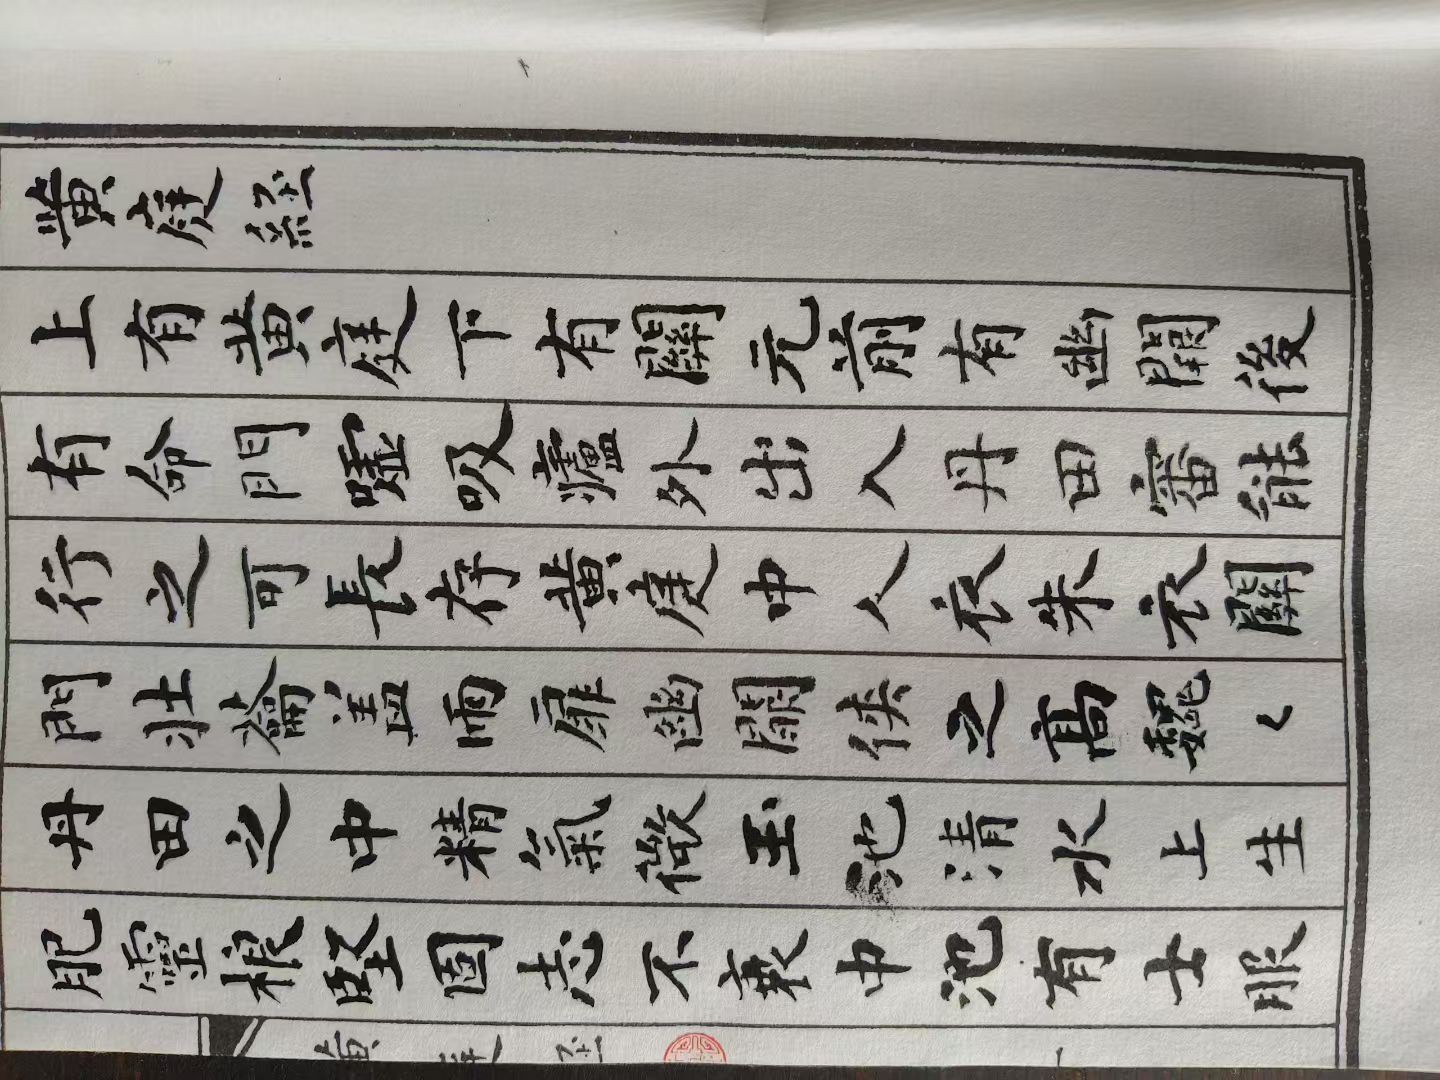 黄庭經
上有黄庭下有關元前有幽闕後
有命門噓吸廬外出入丹田審能
行之可長存黄庭中人衣朱衣關
門壯籥盖兩扉幽闕俠之高魏〻
丹田之中精氣微玉池清水上生
肥靈根堅固志不衰中池有士服
黄庭經